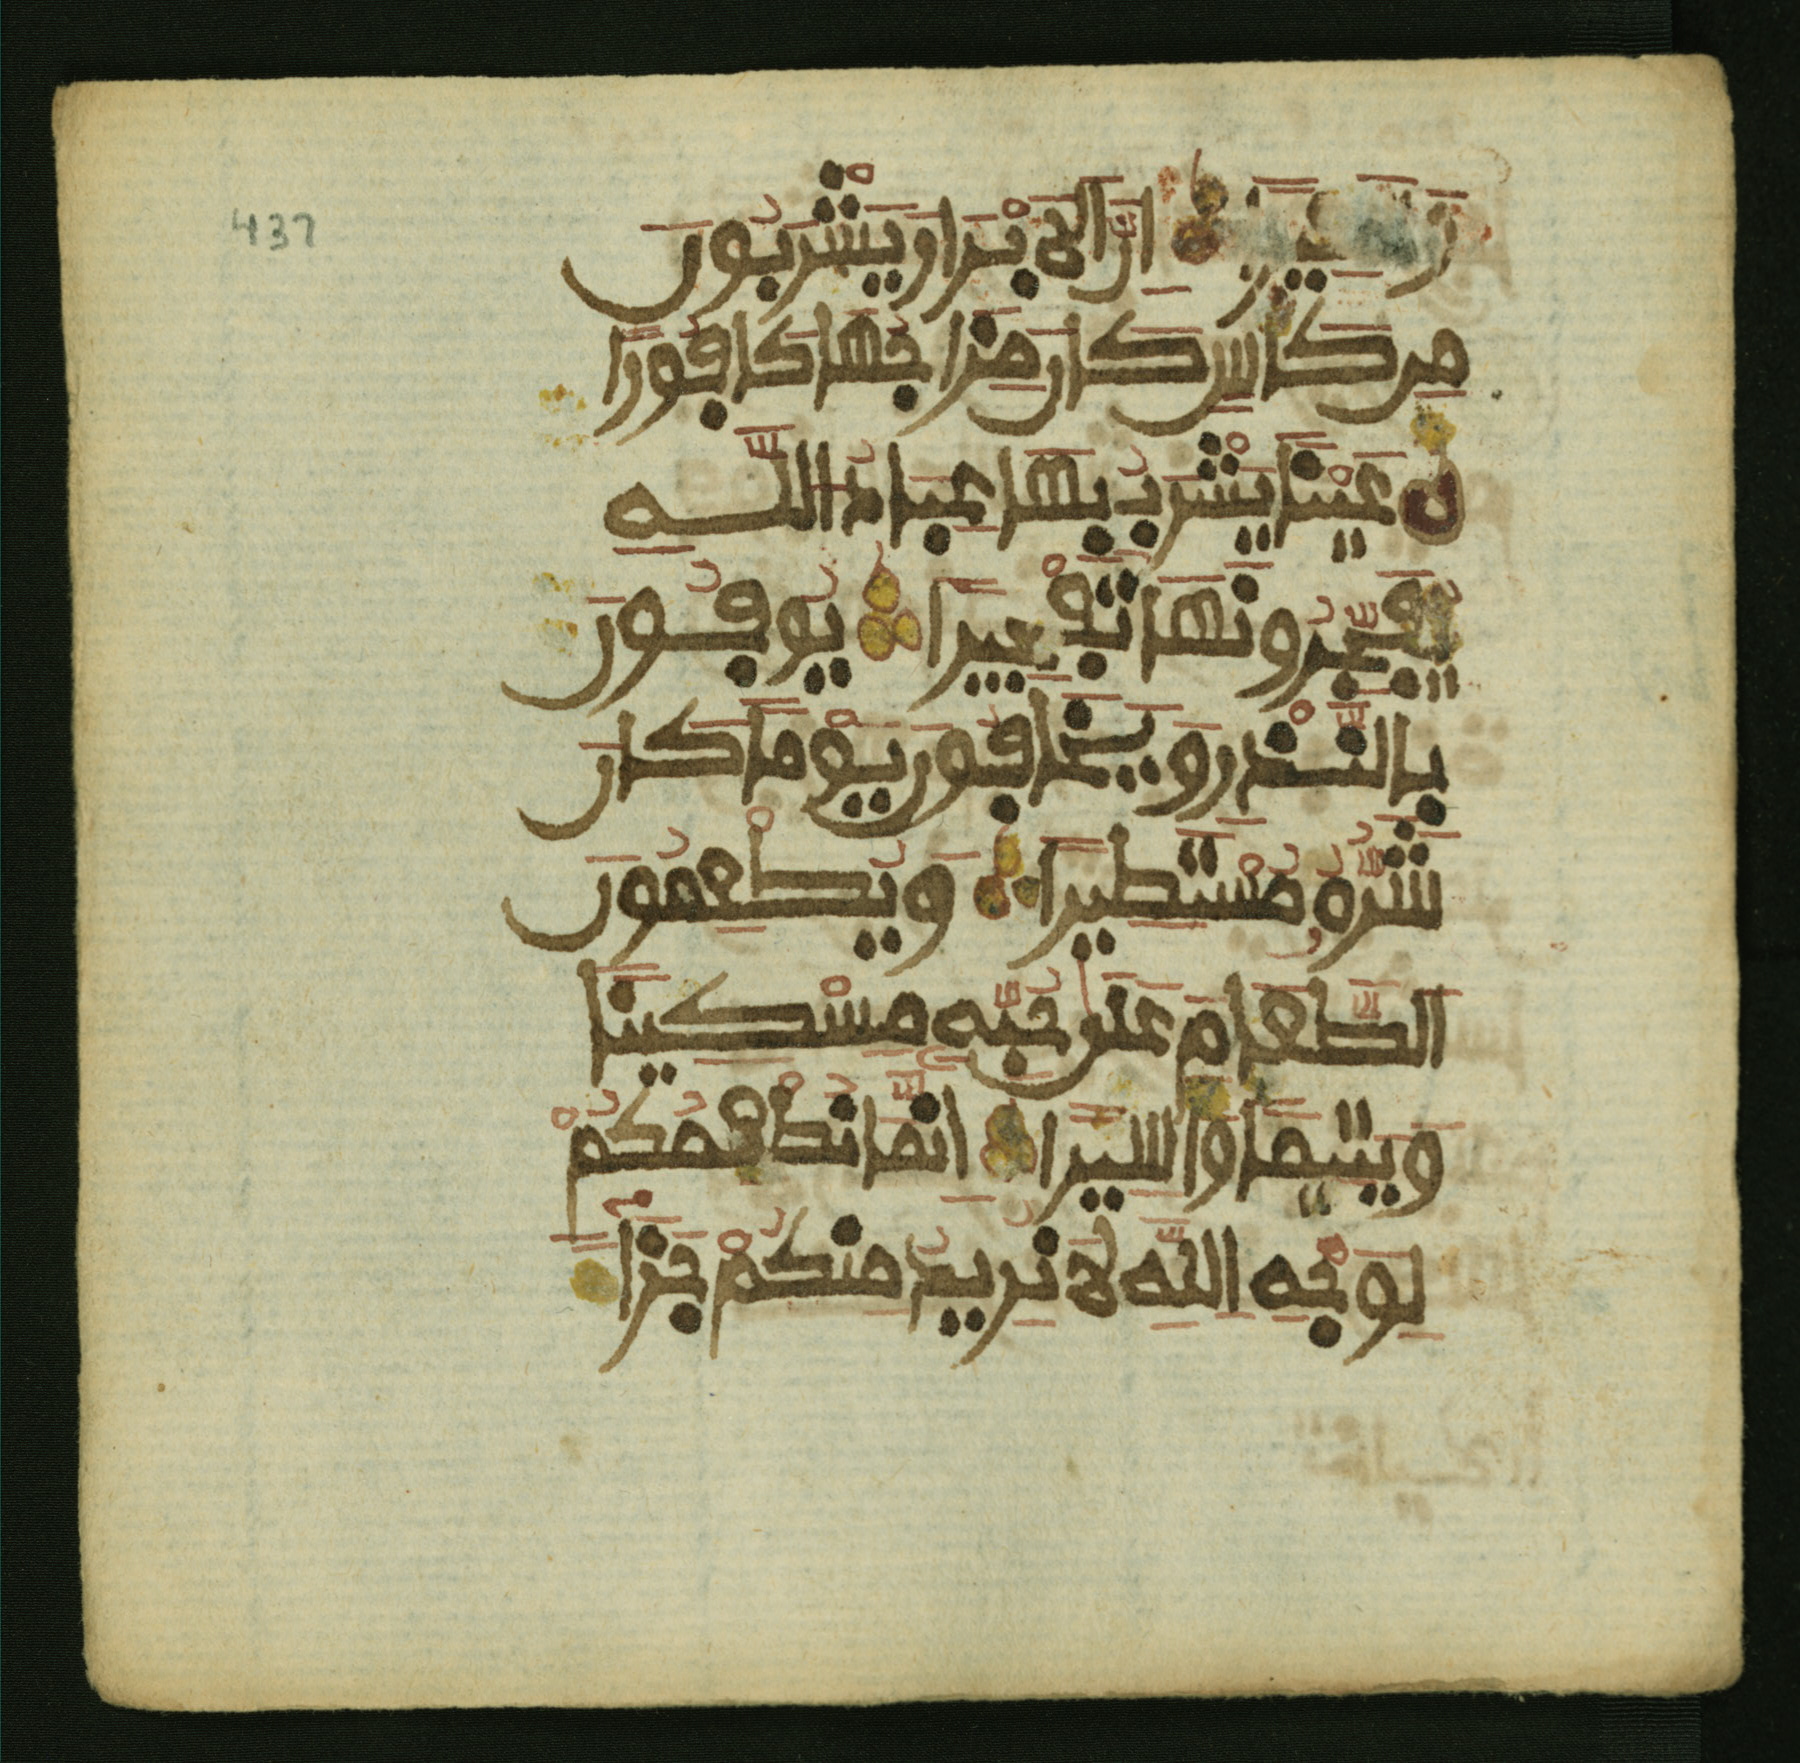 437
وسعيرا ان الابرار يشربون
من كاس كان مزاجها كافورا
عينا يشرب بها عباد الله
يفجرونها تفجيرا يوفون
بالنذر ويخافون يوما كان
شره مستطيرا ويطعمون
الطعام على حبه مسكينا
ويتيما واسيرا انما نطعمكم
لوجه الله لا نريد منكم جزا